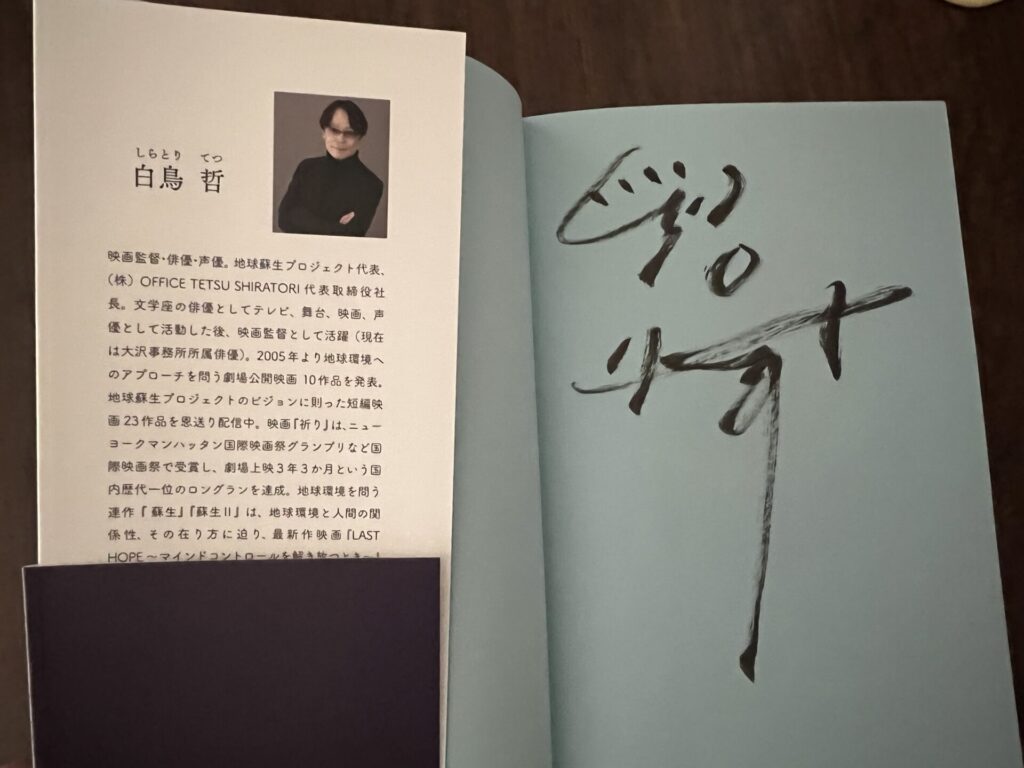 しらとり てつ
白鳥 哲
映画監督・俳優・声優。地球蘇生プロジェクト代表、
(株) OFFICE TETSU SHIRATORI 代表取締役社
長。文学座の俳優としてテレビ、舞台、映画、声
優として活動した後、映画監督として活躍(現在
は大沢事務所所属俳優)。2005年より地球環境へ
のアプローチを問う劇場公開映画 10作品を発表。
地球蘇生プロジェクトのビジョンに則った短編映
画23作品を恩送り配信中。映画『祈り』は、ニュー
ヨークマンハッタン国際映画祭グランプリなど国
際映画祭で受賞し、劇場上映3年3か月という国
内歴代一位のロングランを達成。地球環境を問う
連作『蘇生』『蘇生II』は、地球環境と人間の関
係性、その在り方に迫り、最新作映画『LAST
HOPE～マインドコントロールを解き放つとき～』